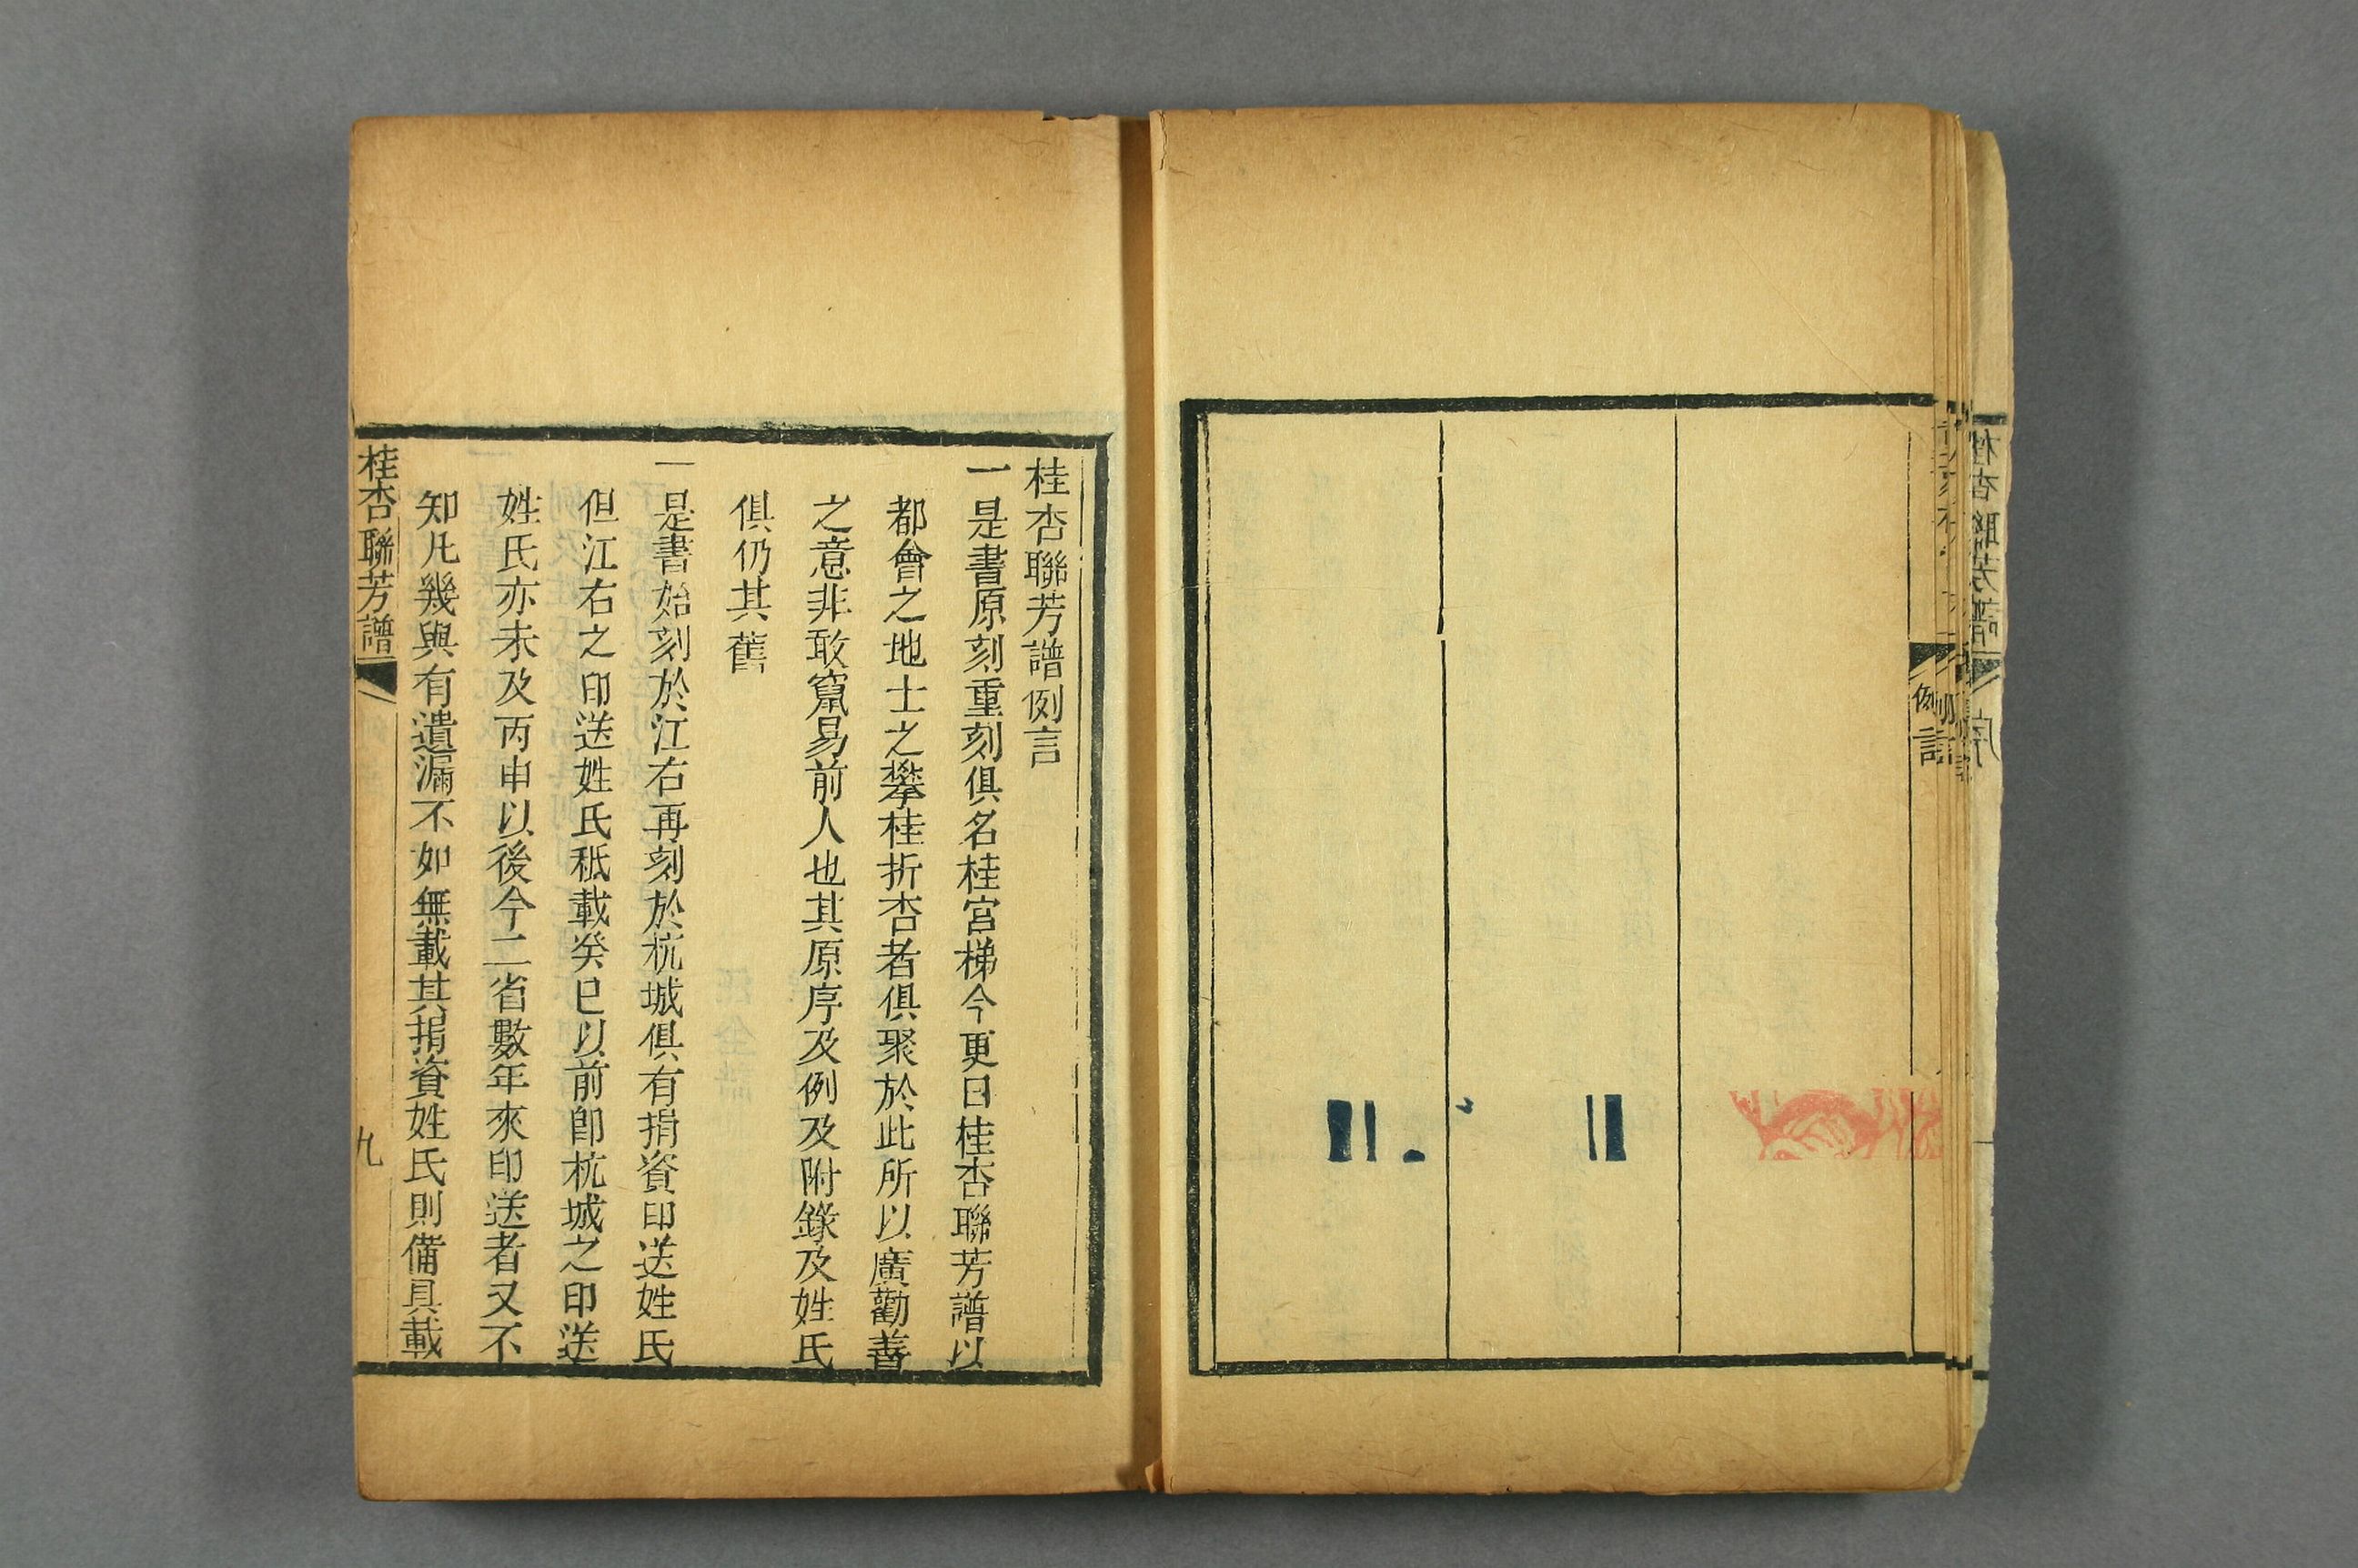 桂杏聯芳譜
序
例言
桂杏聯芳譜例言
一是書原刻重刻俱名桂宮梯今更曰桂杏聯芳譜以
都會之地士之攀桂折杏者俱聚於此所以廣勸善
之意非敢竄易前人也其原序及例及附錄及姓氏
俱仍其舊
一是書始刻於江右再刻於杭城俱有捐資印送姓氏
但江右之印送姓氏秪載癸巳以前卽杭城之印送
姓氏亦未及丙申以後今二省數年來印送者又不
知凡幾與有遺漏不如無載其捐資姓氏則備具載
桂杏聯芳譜
九